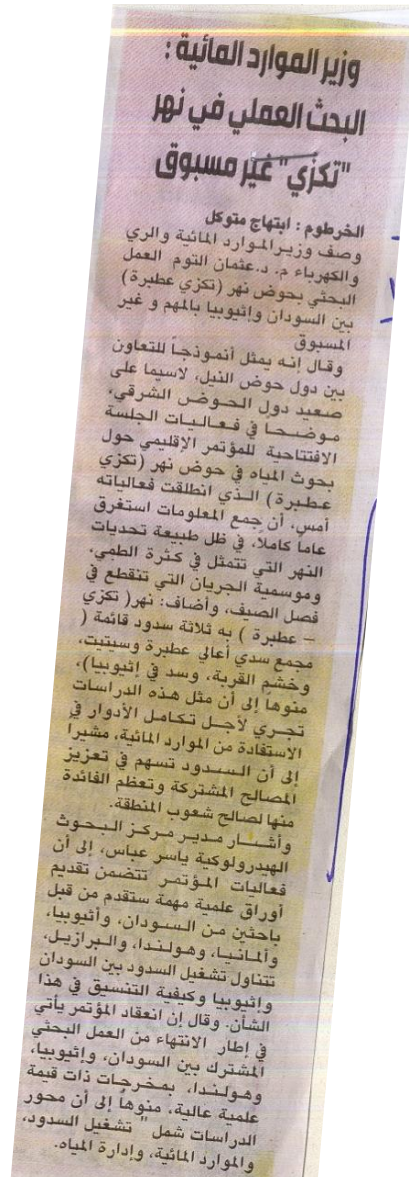 وزير الموارد المائية :
البحث العملي في نهر
"تكزي" غير مسبوق
الخرطوم : ابتهاج متوكل
وصف وزير الموارد المائية والري
والكهرباء م. د.عثمان التوم العمل
البحثي بحوض نهر (تكزي عطبرة)
بين السودان وإثيوبيا بالمهم و غير
المسبوق
وقال إنه يمثل أنموذجاً للتعاون
بين دول حوض النيل، لاسيما على
صعيد دول الحوض الشرقي،
موضحاً في فعاليات الجلسة
الافتتاحية للمؤتمر الإقليمي حول
بحوث المياه في حوض نهر (تكزي
عطبرة) الذي انطلقت فعالياته
أمس، أن جمع المعلومات استغرق
عاماً كاملاً، في ظل طبيعة تحديات
النهر التي تتمثل في كثرة الطمي،
وموسمية الجريان التي تنقطع في
فصل الصيف، وأضاف: نهر( تكزي
– عطبرة ) به ثلاثة سدود قائمة (
مجمع سدي أعالي عطبرة وسيتيت،
وخشم القربة، وسد في إثيوبيا)،
منوهاً إلى أن مثل هذه الدراسات
تجري لأجل تكامل الأدوار في
الاستفادة من الموارد المائية، مشيراً
إلى أن السدود تسهم في تعزيز
المصالح المشتركة وتعظم الفائدة
منها لصالح شعوب المنطقة.
وأشار مدير مركز البحوث
الهيدرولوكية ياسر عباس، إلى أن
فعاليات المؤتمر تتضمن تقديم
أوراق علمية مهمة ستقدم من قبل
باحثين من السودان، وأثيوبيا،
وألمانيا، وهولندا، والبرازيل،
تتناول تشغيل السدود بين السودان
وإثيوبيا وكيفية التنسيق في هذا
الشأن. وقال إن انعقاد المؤتمر يأتي
في إطار الانتهاء من العمل البحثي
المشترك بين السودان، وإثيوبيا،
وهولندا، بمخرجات ذات قيمة
علمية عالية، منوهاً إلى أن محور
الدراسات شمل " تشغيل السدود،
والموارد المائية، وإدارة المياه.